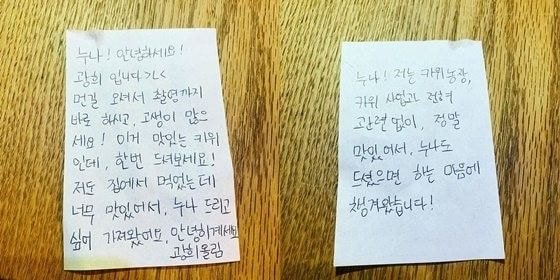 누나! 안녕하세요!
광희 입니다>_<
먼길 오셔서 촬영까지
바로 하시고, 고생이 많으
세요! 이거 맛있는 키위
인데, 한번 드셔보세요!
저도 집에서 먹었는데
너무 맛있어서, 누나 드리고
싶어 가져왔어요, 안녕히계세요
광희올림
누나! 저는 키위농장,
키위 사업과 전혀
관련 없이, 정말
맛있어서, 누나도
드셨으면 하는 마음에
챙겨왔습니다!